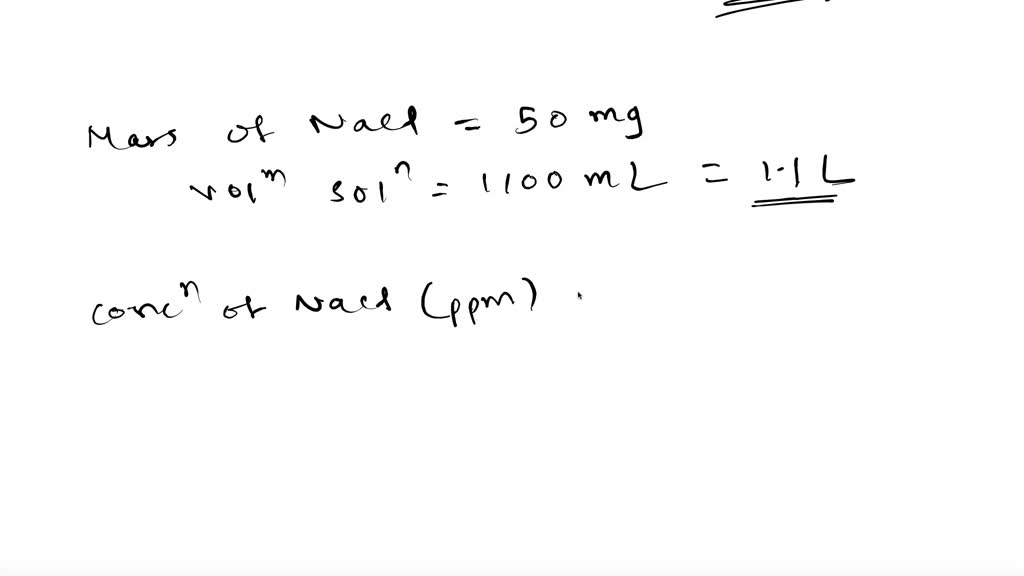 Mass of NaCl = 50 mg
volᵐ solⁿ = 1100 mL = 1.1 L
concⁿ of NaCl (ppm)